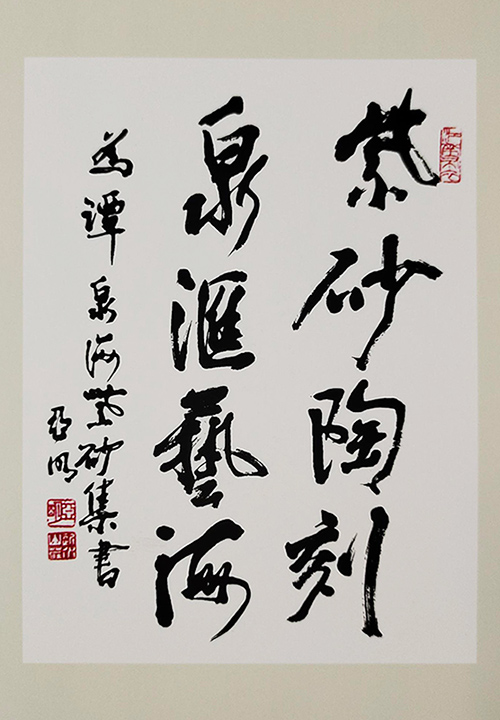 紫砂陶刻
泉滙藝海
為譚泉海紫砂集書
亞明